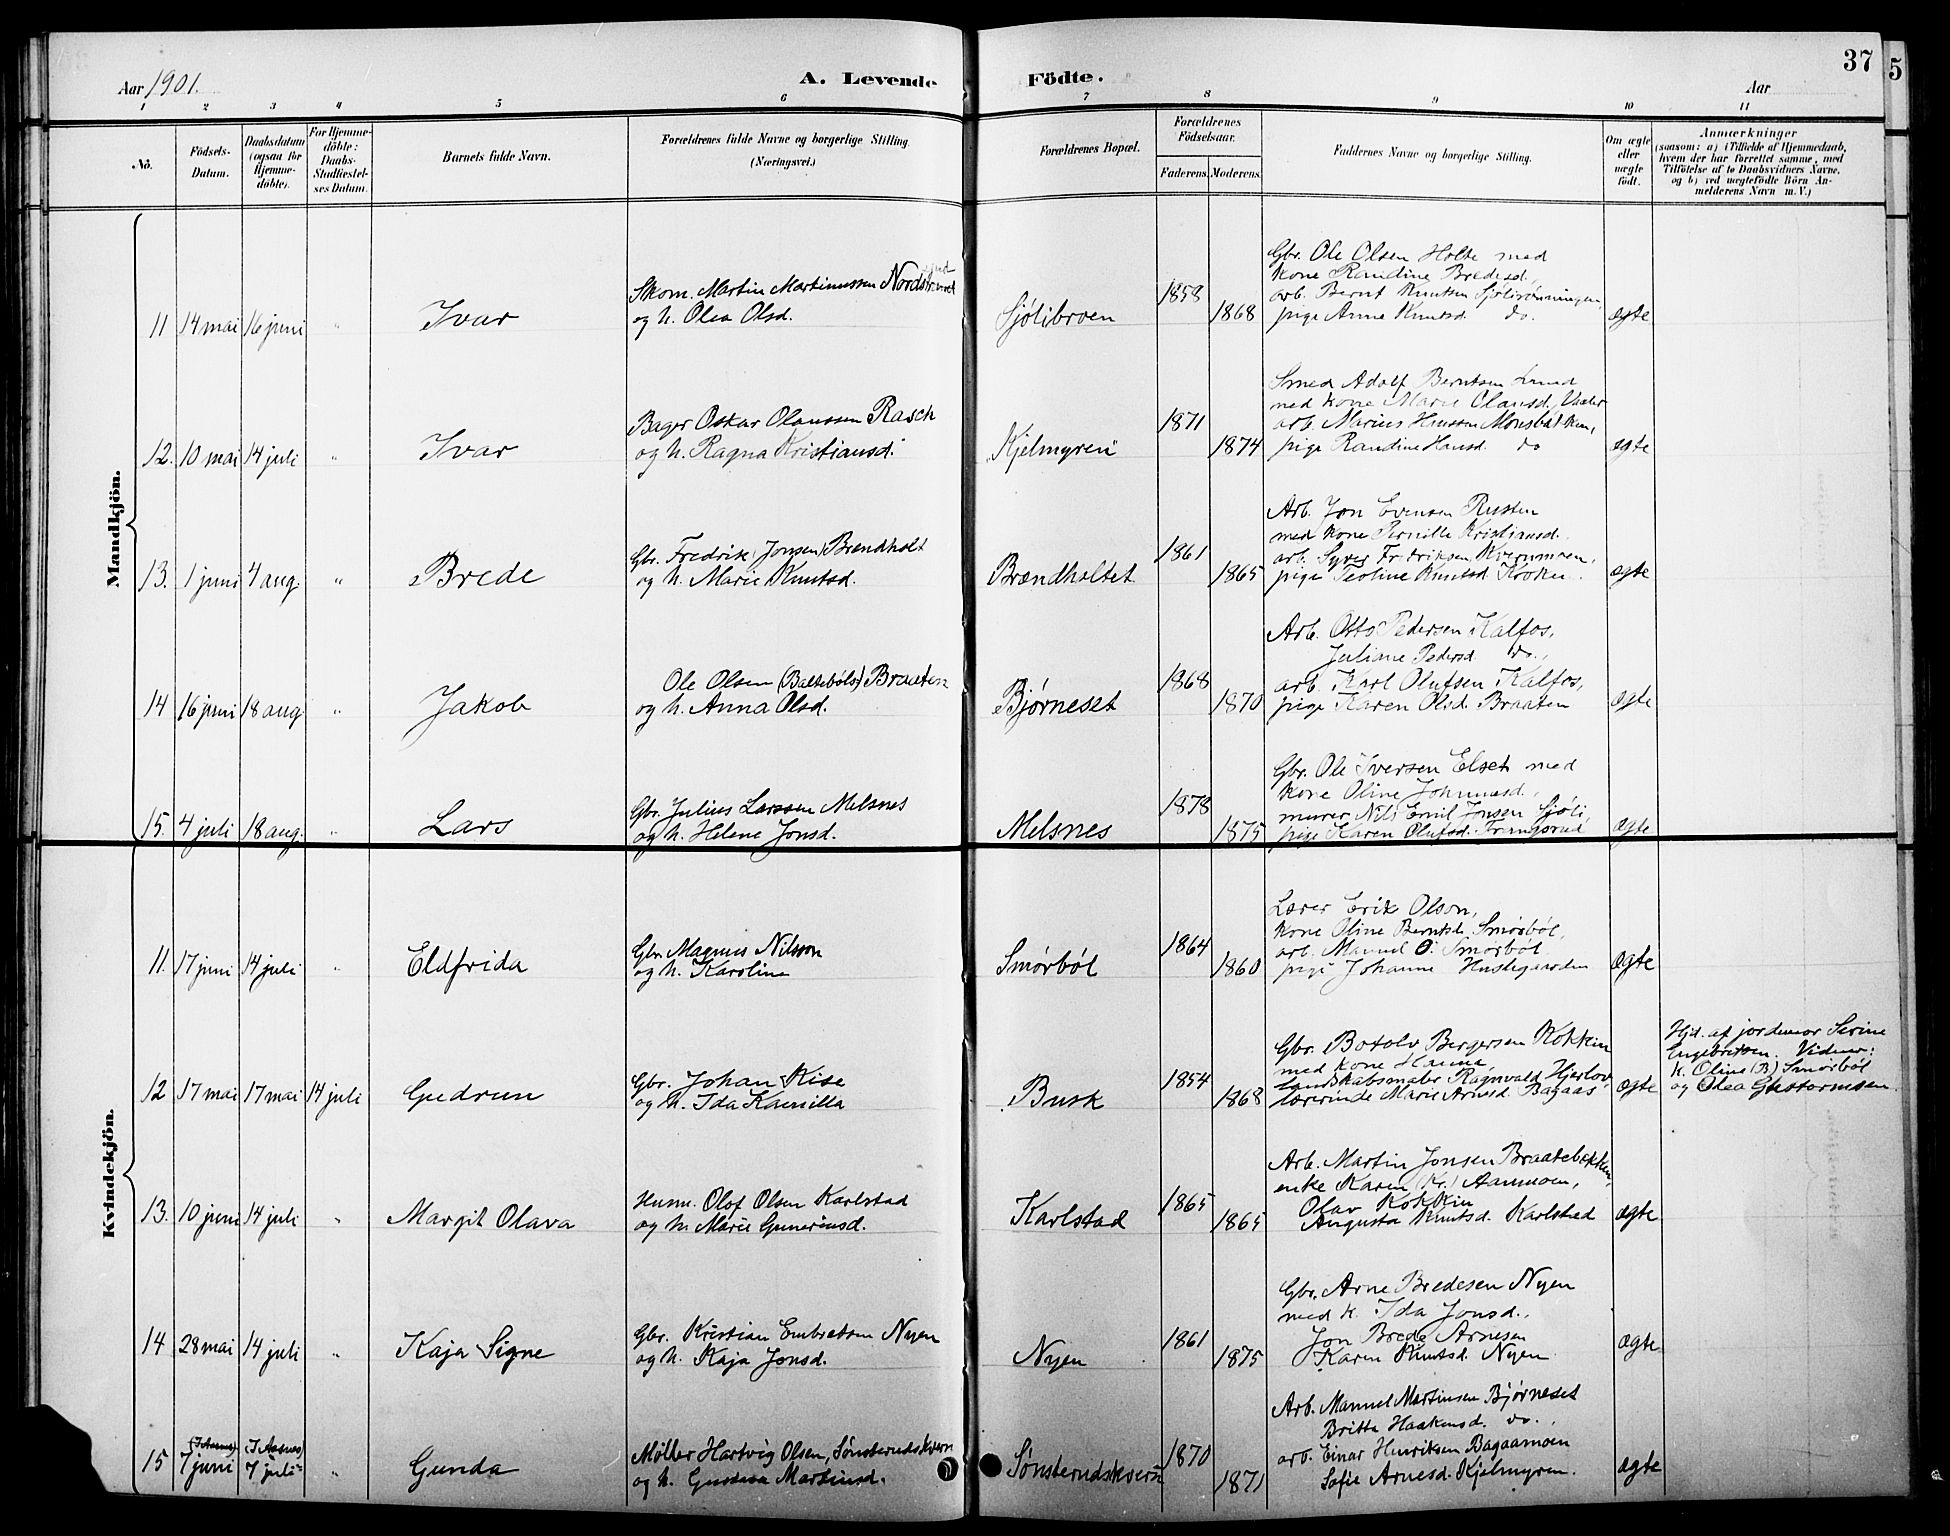 Aar 1901.
A. Levende Födte.
Aar
37
5
1 2 3 4 5 6 7 8 9 10 11
No.
Födsels-Datum.
Daabsdatum (ogsaa for Hjemme-döbte).
For Hjemme-döbte: Daabs-Stadfæstel-ses Datum.
Barnets fulde Navn.
Forældrenes fulde Navne og borgerlige Stilling. (Næringsvei.)
Forældrenes Bopæl.
Forældrenes Födselsaar.
Faderens. Moderens.
Faddernes Navne og borgerlige Stilling.
Om ægte eller uægte födt.
Anmærkninger
(saasom: a) (Tilfælde af Hjemmedaab, hvem der har forrettet samme, med Tilföielse af to Daabsvidners Navne, og b) ved uægtefödte Börn An-melderens Navn m. V.)
Mandkjön.
11 14 mai 16 juni " Ivar
Skom. Martin Martinussen Nordstrand
og h. Olea Olsd.
Sjölibroen 1858 1868
Gbr. Ole Olsen Holte med
kone Randine Bredesd.,
arb. Bernt Knutsen Sjölirönningen,
pige Anne Knutsd. do.
ægte
12. 10 mai 14 juli " Ivar
Bager Oskar Olaussen Rasch
og h. Ragna Kristiansd.
Kjelmyren 1871 1874
Smed Adolf Berntsen Lund
med kone Marie Olausd., Vaaler
arb. Marius Hansen
pige Randine Hansd. do
ægte
13. 1 juni 4 aug. " Brede
Gbr. Fredrik (Jonsen) Brendholt
og h. Marie Knutsd.
Brændholtet 1861 1865
Arb. Jon Evensen Rusten
med kone Pernille Kristiansd.
arb. Syver Fredriksen Kvernmoen,
pige Teoline Knutsd. Kroken.
ægte
14 16 juni 18 aug " Jakob
Ole Olsen (Baltebøls) Braaten
og h. Anna Olsd.
Bjørneset 1868 1870
Arb. Otto Pedersen Kalfos,
Juliane Pedersd. do.,
arb. Karl Olufsen Kalfos,
pige Karen Olsd. Braaten
ægte
15. 4 juli 18 aug. " Lars
Gbr. Julius Larssen Melsnes
og h. Helene Jonsd.
Melsnes 1878 1875
Gbr. Ole Iversen Elset med
kone Oline Johannesd.,
murer Nils Emil Jonsen Sjöli,
pige Karen Olufsd. Frangsrud
ægte
Kvindekjön.
11. 17 juni 14 juli " Eldfrida
Gbr. Magnus Nilsson
og h. Karoline
Smørbøl 1864 1860
Lærer Erik Olson,
kone Oline Berntsd. Smørbøl,
arb. Manuel O. Smørbøl
pige Johanne Hustegaarden
ægte
12 17 mai 17 mai 14 juli Gudrun
Gbr. Johan Kise
og h. Ida Kamilla
Busk 1854 1868
Gbr. Botolv Bergersen Kokkin
med kone Hanna,
landskabsmaler Ragnvald Hjerlov
lærerinde Marie Arnesd. Bagaas
ægte
Hjd. af jordemor Serine
Engebretsen. Vidner:
k. Oline (B) Smørbøl
og Olea Guttormsen
13. 10 juni 14 juli " Margit Olava
Husm. Olof Olsen Karlstad
og h. Marie Gunerinsd.
Karlstad 1865 1865
Arb. Martin Jonsen Braatebækken,
enke Karen (Kr.) Aanmoen,
Olav Kokkin
Augusta Knutsd. Karlstad
ægte
14 28 mai 14 juli " Kaja Signe
Gbr. Kristian Embretsen Nyen
og h. Kaja Jonsd.
Nyen 1861 1875
Gbr. Arne Bredesen Nyen
med k. Ida Jonsd.,
Jon Brede Arnesen
Karen Knutsd. Nyen
ægte
15 (I Aasnes) 7 juni (I Aasnes) 7 juli " Gunda
Møller Hartvig Olsen, Sønsterudskvern
og h. Martinsd.
Sønsterudskvern 1870 1871
Arb. Manuel Martinsen Bjørneset
Britta Haakensd. do.,
arb. Einar Henriksen Bagaamoen
Sofie Arnesd. Kjelmyren.
ægte